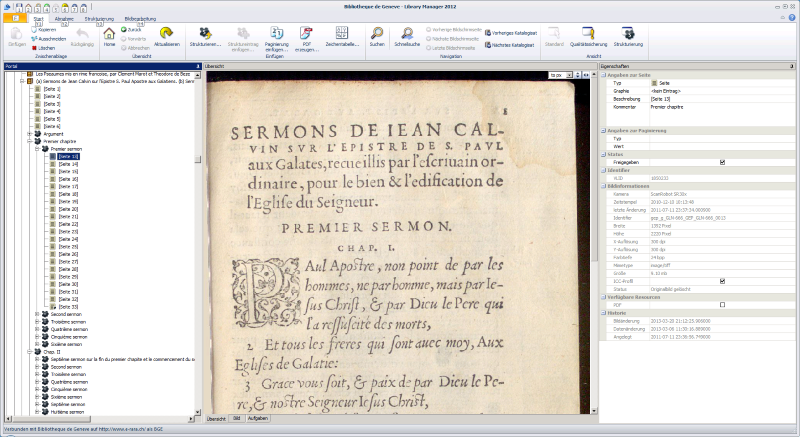 Bibliotheque de Geneve - Library Manager 2012
Start
Abnahme
Strukturierung
Bildbearbeitung
Einfügen
Kopieren
Ausschneiden
Löschen
Rückgängig
Zwischenablage
Home
Zurück
Vorwärts
Abbrechen
Aktualisieren
Übersicht
Strukturieren...
Strukturelement einfügen...
Paginierung einfügen...
PDF erzeugen...
Einfügen
Zeichentabelle...
Suchen
Schnellsuche
Vorherige Bildschirmseite
Nächste Bildschirmseite
Letzte Bildschirmseite
Vorheriges Katalogisat
Nächstes Katalogisat
Navigation
Standard
Qualitätssicherung
Strukturierung
Ansicht
Portal
Les Pseaumes mis en rime francoise, par Clement Marot et Theodore de Beze
(a) Sermons de Jean Calvin sur l'Epistre S. Paul Apostre aux Galatiens. (b) Serm
[Seite 1]
[Seite 2]
[Seite 3]
[Seite 4]
[Seite 5]
[Seite 6]
Argument
Premier chapitre
Premier sermon
[Seite 13]
[Seite 14]
[Seite 15]
[Seite 16]
[Seite 17]
[Seite 18]
[Seite 19]
[Seite 20]
[Seite 21]
[Seite 22]
[Seite 23]
[Seite 24]
[Seite 25]
[Seite 26]
[Seite 27]
[Seite 28]
[Seite 29]
[Seite 30]
[Seite 31]
[Seite 32]
[Seite 33]
Second sermon
Troisième sermon
Quatrième sermon
Cinquième sermon
Sixième sermon
Chap. II
Septième sermon sur la fin du premier chapitre et le commencement du s
Second sermon
Troisième sermon
Quatrième sermon
Cinquième sermon
Sixième sermon
Septième sermon
Huitième sermon
Übersicht
to px
1
SERMONS DE IEAN CAL-
VIN SVR L'EPISTRE DE S. PAVL
aux Galates, recueillis par l'eſcriuain or-
dinaire, pour le bien & l'edification de
l'Egliſe du Seigneur.
PREMIER SERMON.
CHAP. I.
PAul Apoſtre, non point de par les
hommes, ne par homme, mais par Ie-
ſus Chriſt, & par Dieu le Pere qui
l'a reſſuſcité des morts,
2 Et tous les freres qui ſont auec moy, Aux
Egliſes de Galatie:
3 Grace vous ſoit, & paix de par Dieu le Pe-
re, & noſtre Seigneur Ieſus Chriſt,
Übersicht
Bild
Aufgaben
Eigenschaften
Angaben zur Seite
Typ Seite
Graphie <kein Eintrag>
Beschreibung [Seite 13]
Kommentar Premier chapitre
Angaben zur Paginierung
Typ
Wert
Status
Freigegeben
Identifier
VLID 1650233
Bildinformationen
Kamera ScanRobot SR30x
Zeitstempel
letzte Änderung
Identifier
Breite 1392 Pixel
Höhe 2220 Pixel
X-Auflösung 300 dpi
Y-Auflösung 300 dpi
Farbtiefe 24 bpp
Mimetype image/tiff
Größe 9.10 MB
ICC-Profil
Status Originalbild gelöscht
Verfügbare Resourcen
PDF
Historie
Bildänderung
Datenänderung
Angelegt
Verbunden mit Bibliotheque de Geneve auf http://www.e-rara.ch/ als BGE